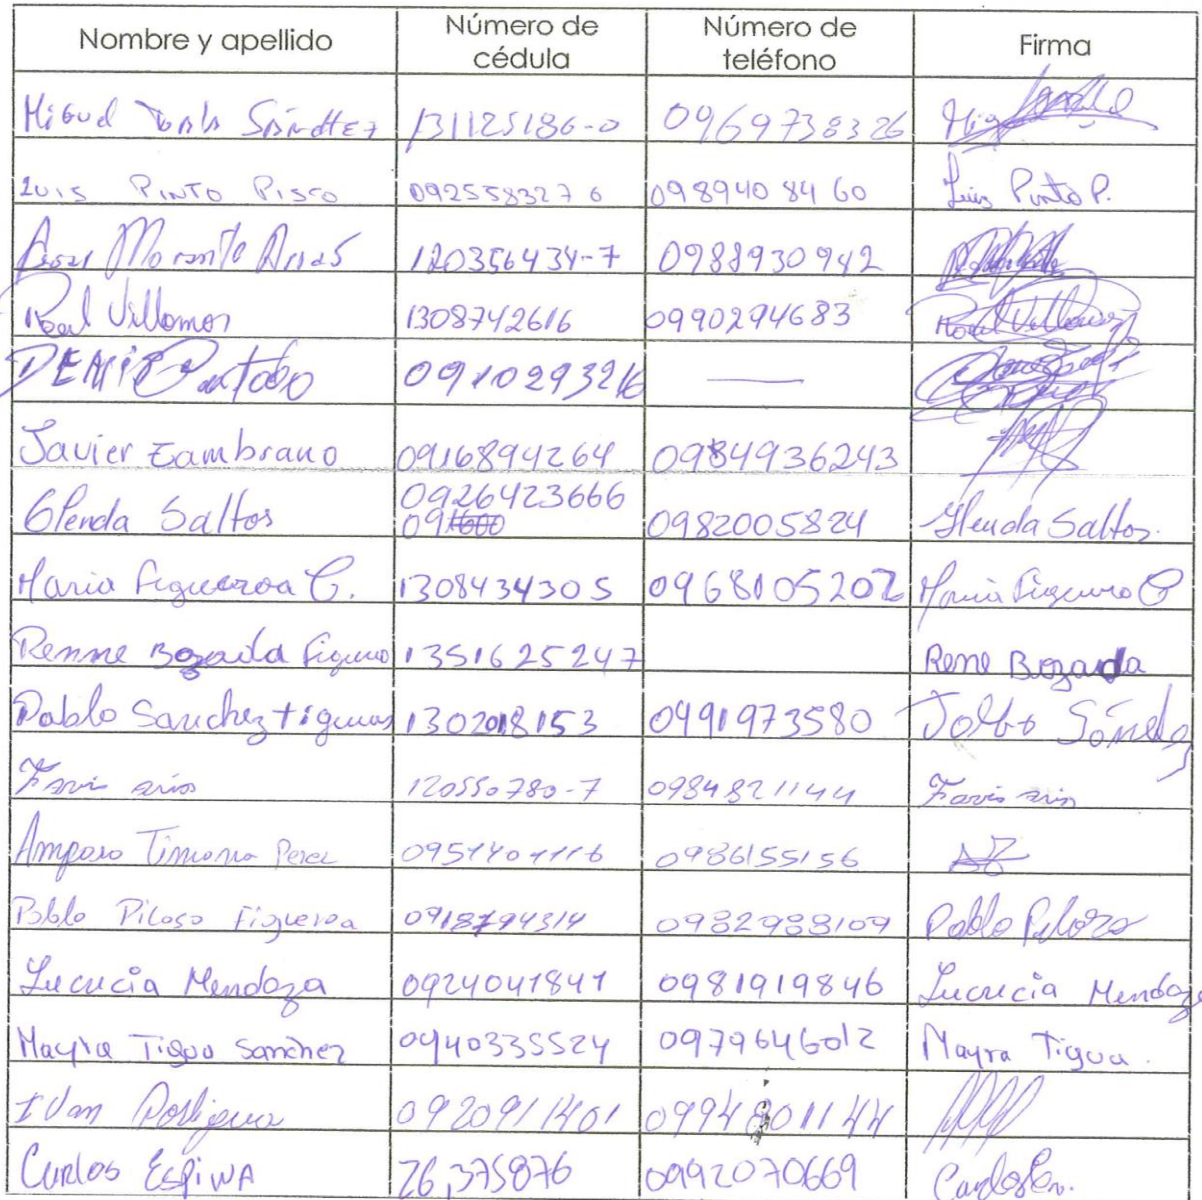 Nombre y apellido Número de cédula Número de teléfono Firma
Miguel Sánchez 131125186-0 0969738326
Luis Pinto Pisco 0925583276 0989408460 Luis Pinto P.
120356434-7 0988930942
Raul Villamor 1308742616 0990294683 Raul Villamor
0910293216 —
Javier Zambrano 0916894264 0984936243
Glenda Saltos 0926423666 0982005824 Glenda Saltos.
Maria Figueroa C. 1308434305 0968105202 Maria Figueroa C
Renne Bozada Figuero 1351625247 Rene Bozada
Pablo Sanchez tiguas 1302018153 0991973580
120550780-7 0984821144
Amparo Perez 0986155156
Pablo Piloso Figueroa 0918794314 0982988109 Pablo Piloso
Lucrecia Mendoza 0924041841 0981919846 Lucrecia Mendoza
Mayra Tigua Sanchez 0940335524 0979646012 Mayra Tigua.
Ivan 0920911401 0994801144
Carlos Espiwa 26,375876 0992070669